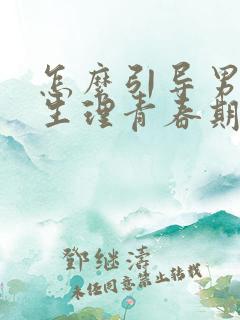 怎麽引导男
生理青春期
鄧继濤
未经同意禁止转载